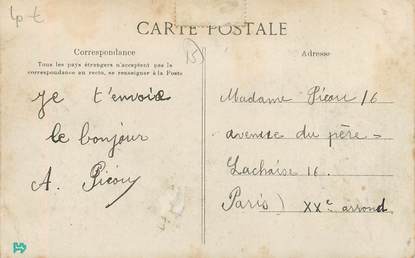 CARTE POSTALE
Correspondance
Tous les pays étrangers n'acceptent pas la
correspondance au recto, se renseigner à la Poste
je t'envoie
le bonjour
A. Picou
Adresse
Madame Picou 16
avenue du père =
Lachaise 16.
Paris) XXe arrond